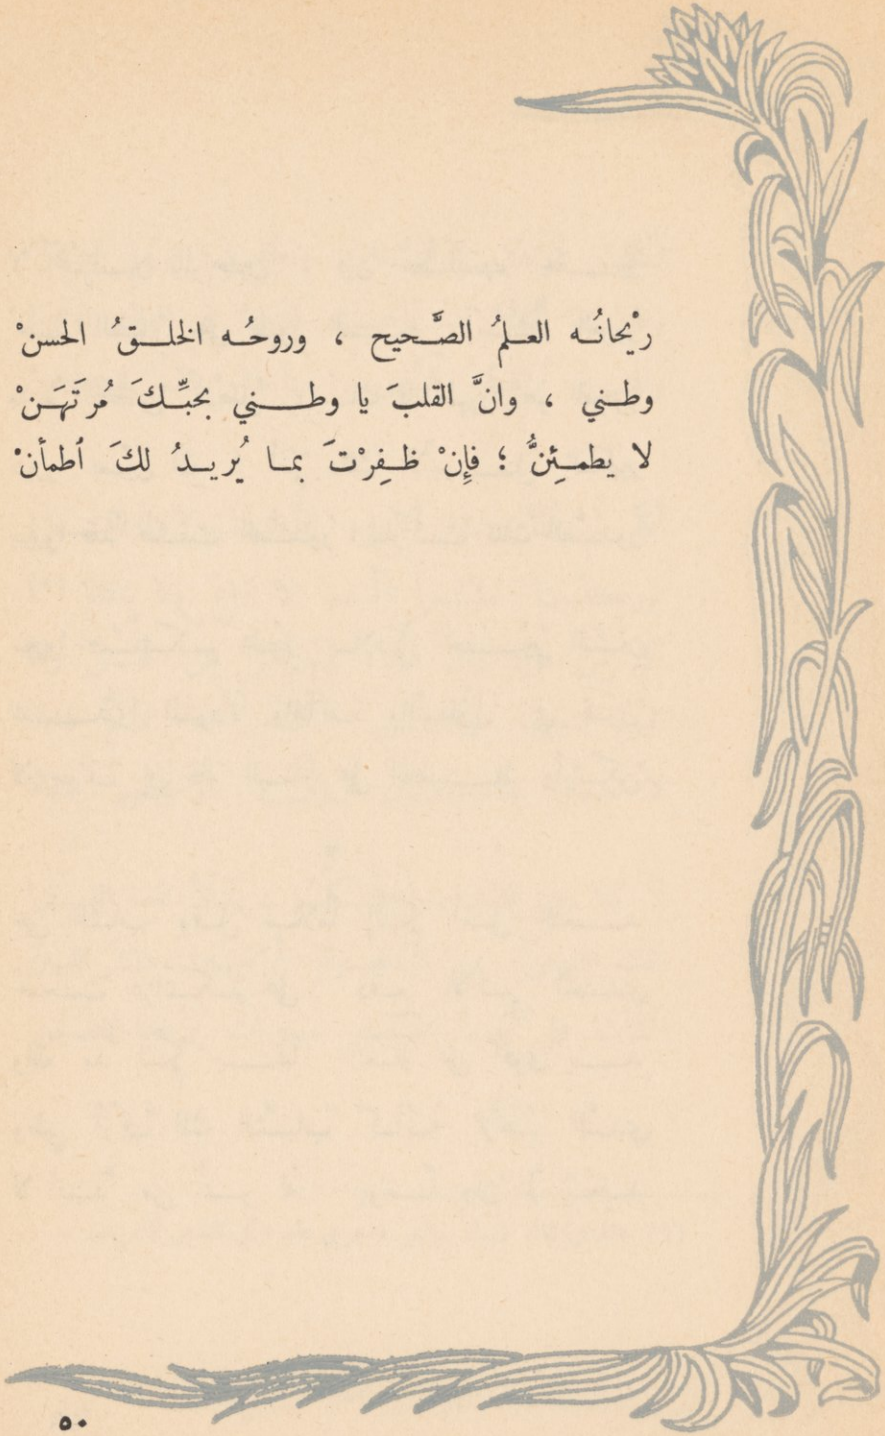 رَيْحانُه العلمُ الصَّحيح ، وروحُه الخلقُ الحسنْ
وطني ، وانَّ القلبَ يا وطني بحبِّكَ مُرتَهَنْ
لا يطمئِنُّ ؛ فإِنْ ظفِرْتَ بما يُريدُ لكَ ٱطمأنْ
٥٠